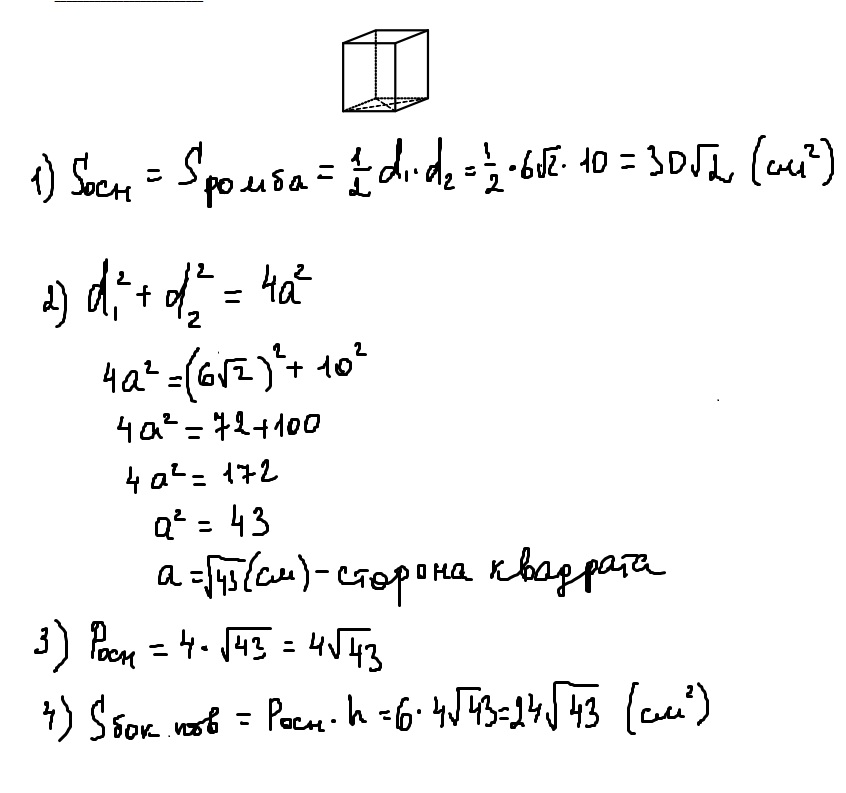 1) Sосн = Sромба = 1/2 d₁·d₂ = 1/2 · 6√2 · 10 = 30√2 (см²)
2) d₁² + d₂² = 4a²
4a² = (6√2)² + 10²
4a² = 72+100
4a² = 172
a² = 43
a = √43 (см) – сторона квадрата
3) Pосн = 4 · √43 = 4√43
4) Sбок. пов = Pосн · h = 6 · 4√43 = 24√43 (см²)